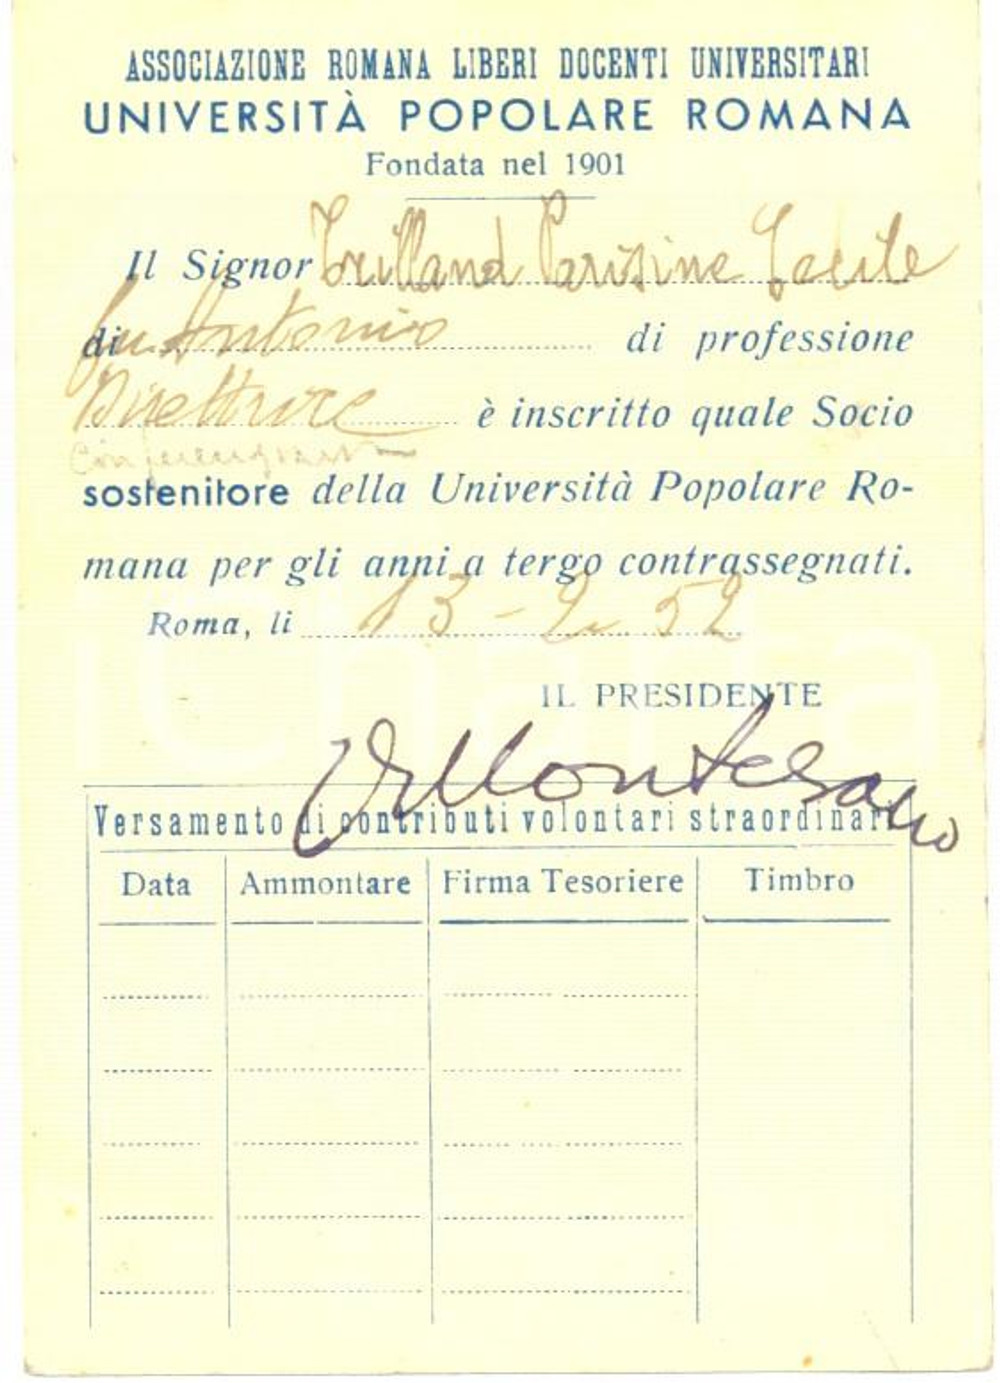 ASSOCIAZIONE ROMANA LIBERI DOCENTI UNIVERSITARI
UNIVERSITÀ POPOLARE ROMANA
Fondata nel 1901
Il Signor Trilland Parisine Cecile
di fu Antonio di professione
Direttrice è inscritto quale Socio
sostenitore della Università Popolare Ro-
mana per gli anni a tergo contrassegnati.
Roma, li 13-2-52
IL PRESIDENTE
Montesano
Versamento di contributi volontari straordinari
Data Ammontare Firma Tesoriere Timbro